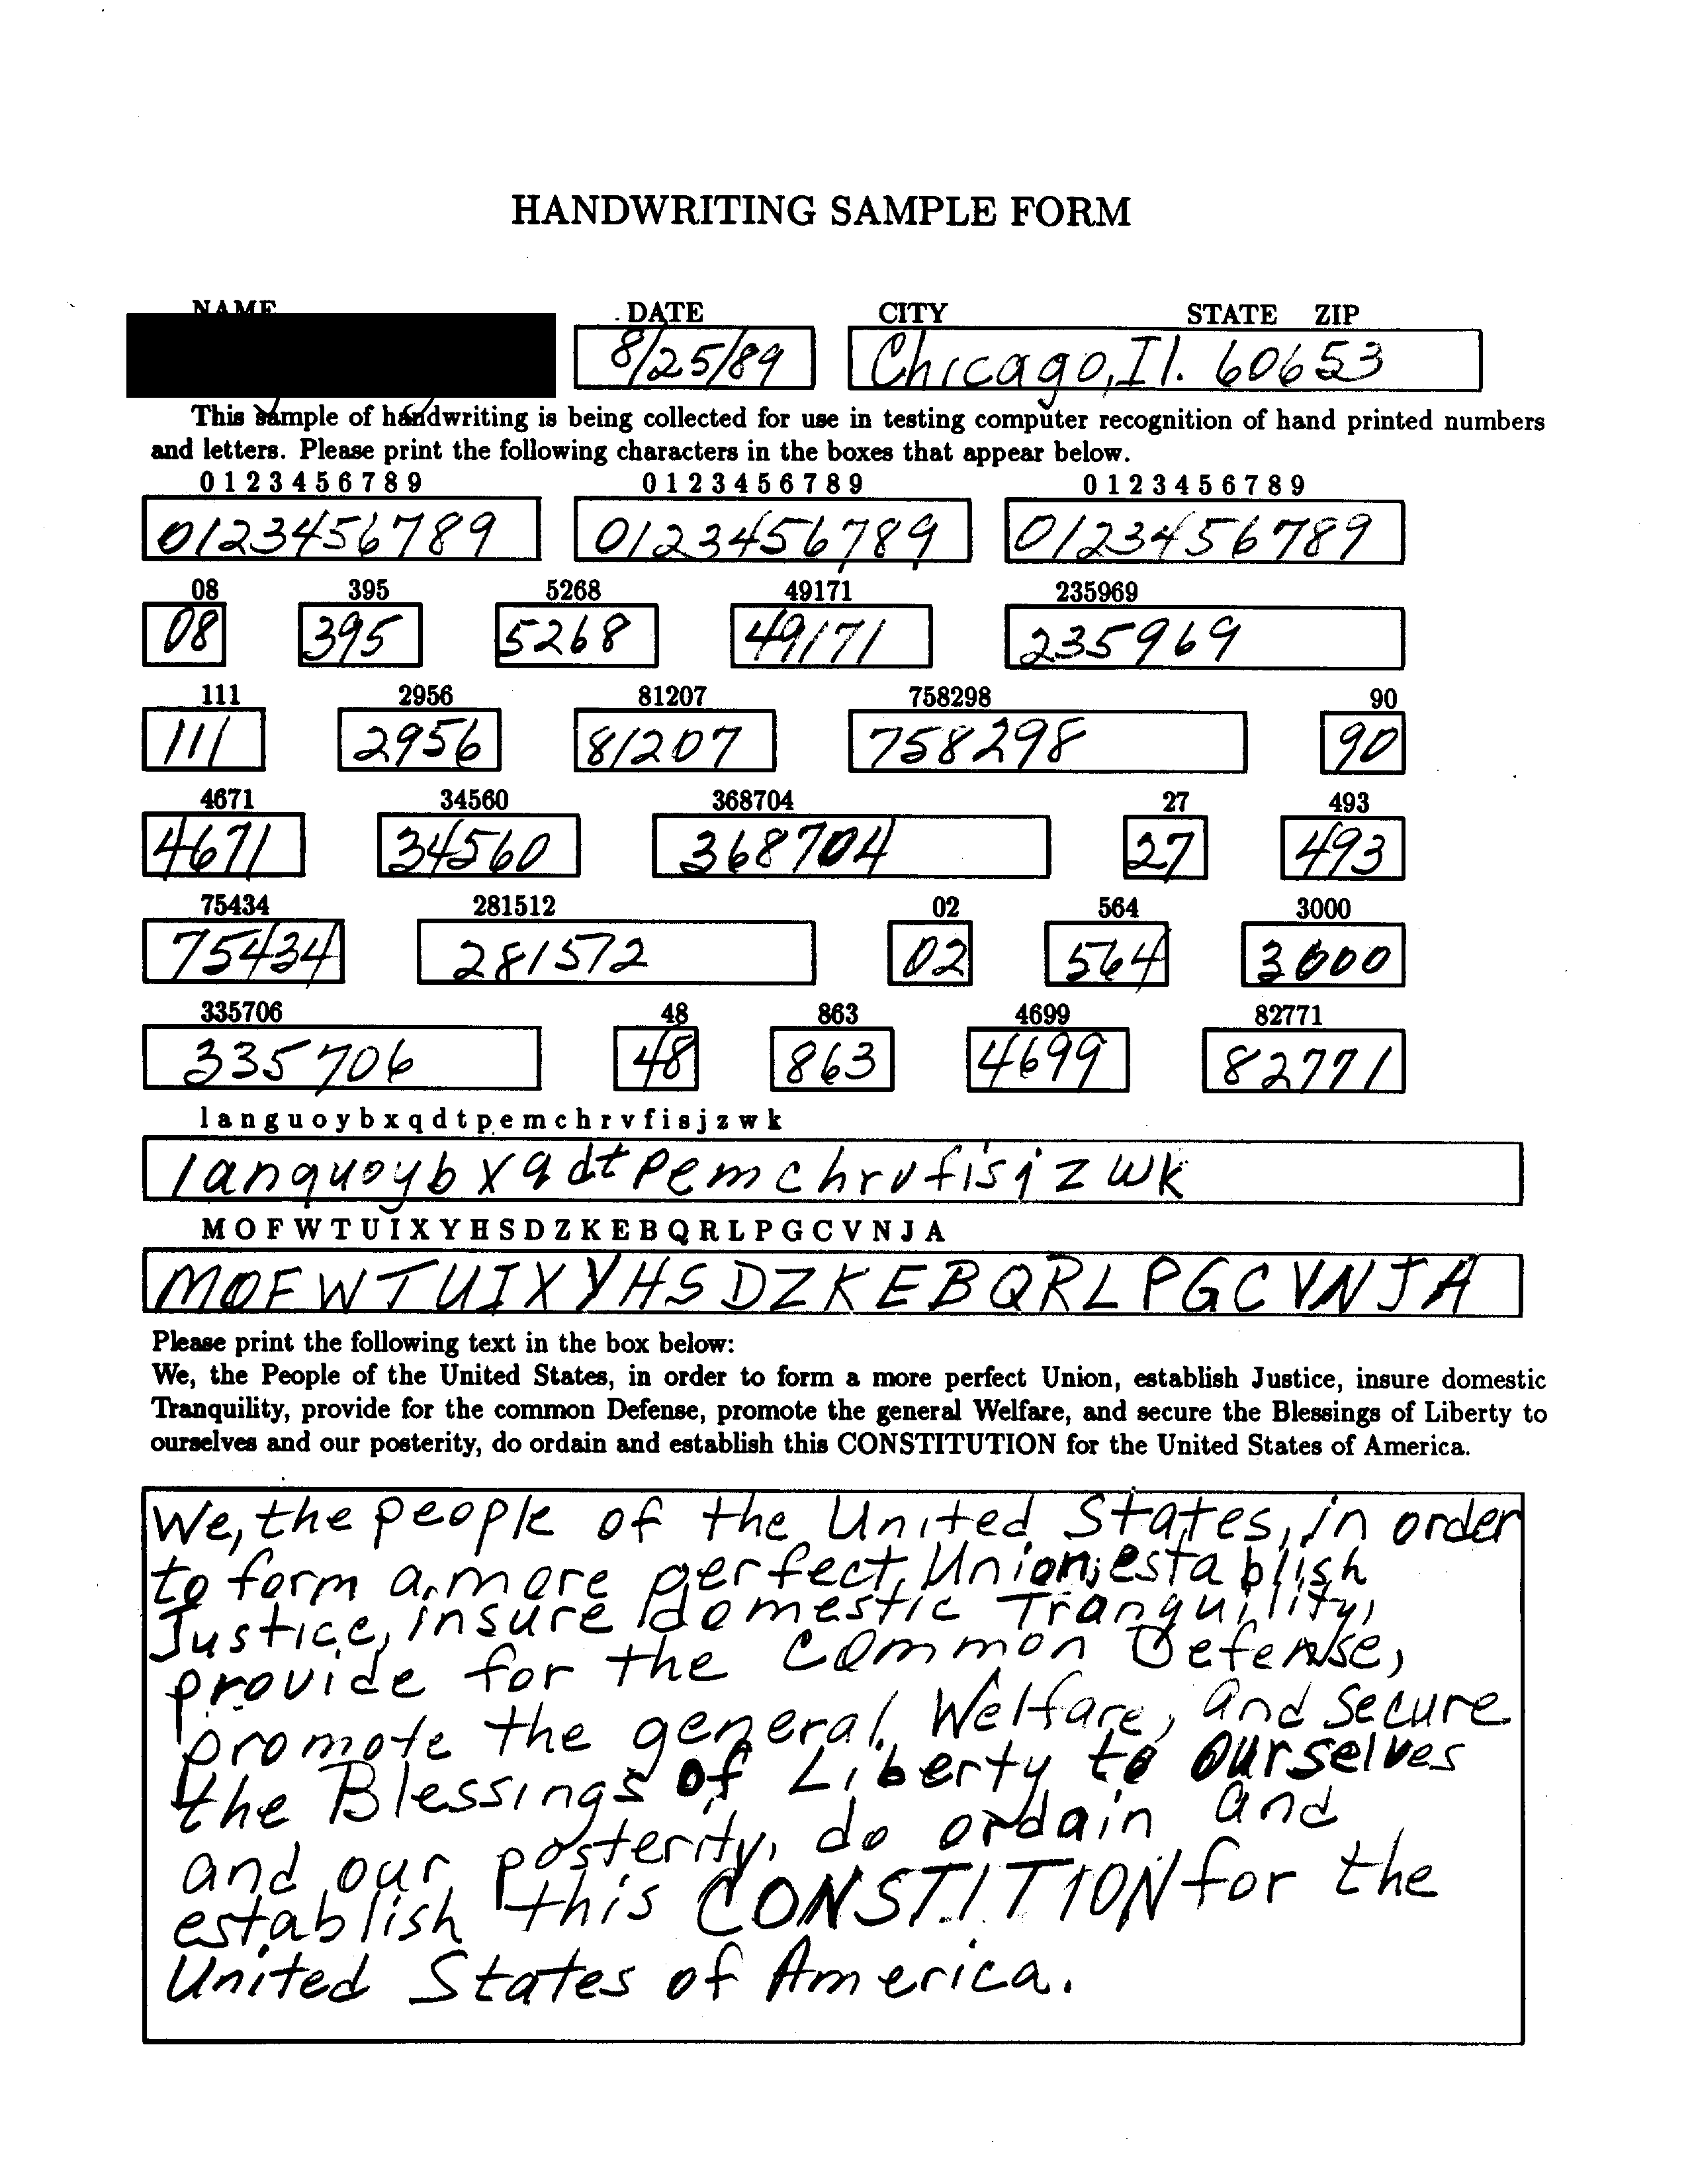 HANDWRITING SAMPLE FORM
NAME DATE CITY STATE ZIP
8/25/89 Chicago, Il. 60653
This sample of handwriting is being collected for use in testing computer recognition of hand printed numbers
and letters. Please print the following characters in the boxes that appear below.
0 1 2 3 4 5 6 7 8 9 0 1 2 3 4 5 6 7 8 9 0 1 2 3 4 5 6 7 8 9
0123456789 0123456789 0123456789
08 395 5268 49171 235969
08 395 5268 49171 235969
111 2956 81207 758298 90
111 2956 81207 758298 90
4671 34560 368704 27 493
4671 34560 368704 27 493
75434 281512 02 564 3000
75434 281572 02 564 3000
335706 48 863 4699 82771
335706 48 863 4699 82771
l a n g u o y b x q d t p e m c h r v f i s j z w k
languoybxqdtpemchrvfisjzwk
M O F W T U I X Y H S D Z K E B Q R L P G C V N J A
MOFWTUIXYHSDZKEBQRLPGCVNJA
Please print the following text in the box below:
We, the People of the United States, in order to form a more perfect Union, establish Justice, insure domestic
Tranquility, provide for the common Defense, promote the general Welfare, and secure the Blessings of Liberty to
ourselves and our posterity, do ordain and establish this CONSTITUTION for the United States of America.
We, the people of the United States, in order
to form a more perfect Union, establish
Justice, insure domestic Tranquility,
provide for the common Defense,
promote the general Welfare, and secure
the Blessings of Liberty to ourselves
and our posterity, do ordain and
establish this CONSTITTION for the
United States of America.